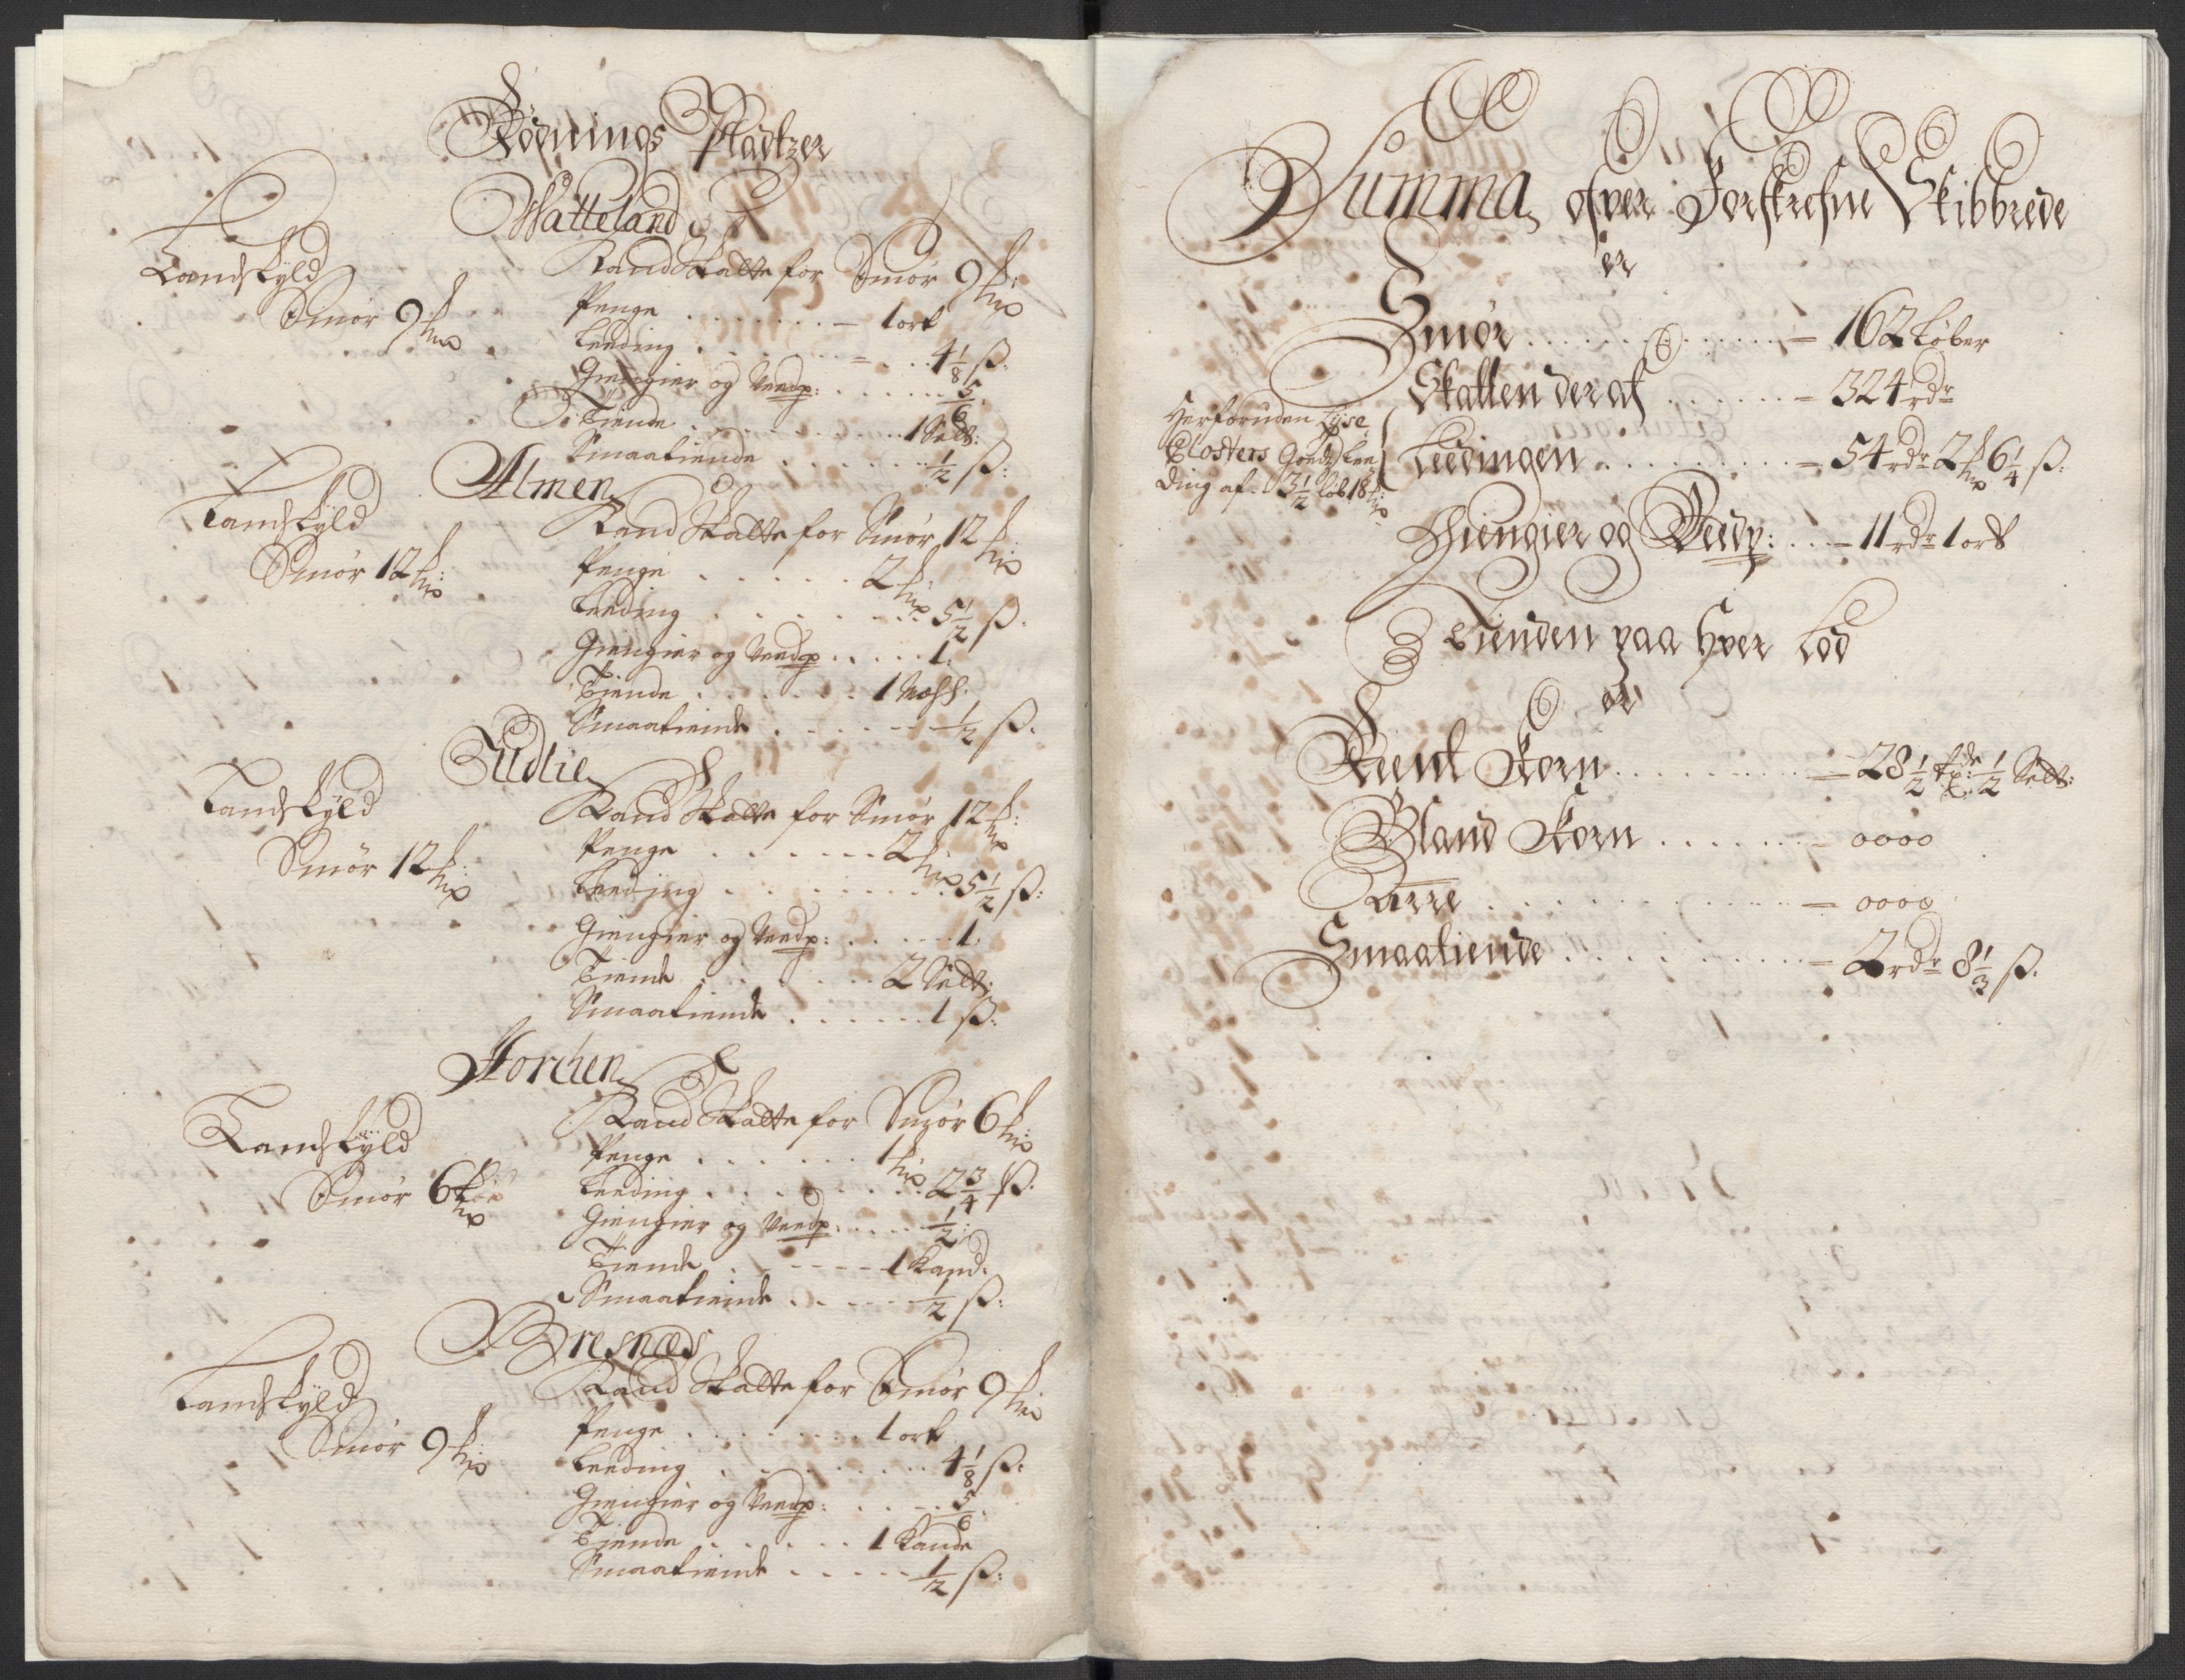 Rødnings Pladtzer
Watteland
Landskyld
Smør 9
Rand Skatte for Smør 9
Penge - 1 ort
Leeding 4 1/8 ß:
Giengier og Veedp: 5/6
Tiende 1 Selt:
Smaatiende 1/2 ß:
Almen
Landskyld
Smør 12
Rand Skatte for Smør 12
Penge 2
Leeding 5 1/2 ß:
Giengier og Veedp 1:
Tiende 1
Smaatiende 1/2 ß.
Landskyld
Smør 12
Rand Skatte for Smør 12
Penge 2
Leeding 5 1/2 ß:
Giengier og Veedp: 1:
Tiende 2 Selt:
Smaatiende 1 ß:
Landskyld
Smør 6
Rand Skatte for Smør 6
Penge 1
Leeding 2 3/4 ß.
Giengier og Veedp: 1/2:
Tiende 1 Kand:
Smaatiende 1/2 ß:
Bresnæs
Landskyld
Smør 9
Rand Skatte for Smør 9
Penge 1 ort
Leeding 4 1/8 ß:
Giengier og Veedp: 5/6
Tiende 1 Kande
Smaatiende 1/2 ß:
Summa ofver Forskrefne Skibbrede
er
Smør = 162 Løber
Skatten deraf = 324 rdr
Herforuden Lyse
Closters Goedz Lee
ding af 3 1/2 løb 18
Leedingen = 54 rdr 2 6 1/4 ß.
Giengier og Veedp: = 11 rdr 1 ort
Tienden paa Hver Lod
er
Reent Korn = 28 1/2 tde: 1/2 Selt:
Bland Korn = 0000
Turre = 0000
Smaatiende = 2 rdr 8 1/3 ß.